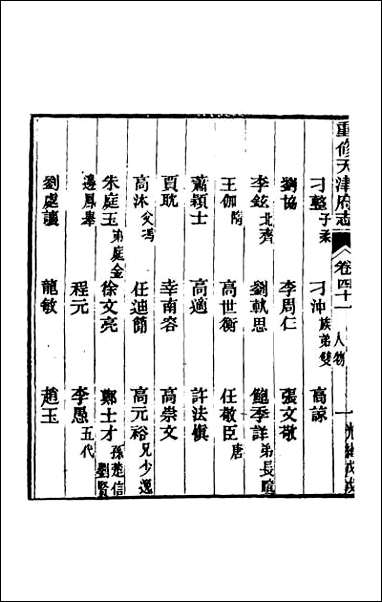 重修天津府志 卷四十一 人物 一 光緒戊戌
刁整子柔 刁沖族弟雙 高諒
劉協 李周仁 張文敬
李鉉北齊 劉軌思 鮑季詳弟長暄
王伽隋 高世衡 任敬臣唐
蕭穎士 高適 許法愼
賈耽 幸南容 高崇文
高沐父馮 任迪簡 高元裕兄少逸
朱庭玉弟庭金 徐文亮 鄭士才孫楚信 劉賢
邊鳳舉 程元 李愚五代
劉處讓 龍敏 趙玉